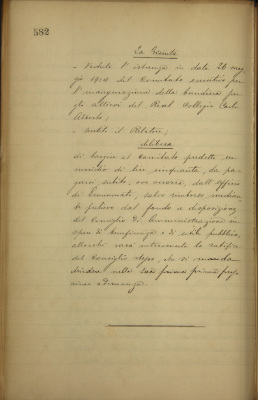 582
La Giunta
- Veduta l'istanza in data 26 mag
gio 1914 del Comitato esecutivo per
l'inaugurazione della bandiera per
gli allievi del Real Collegio Carlo
Alberto;
- udito il Relatore;
delibera
di al Comitato predetto un
di lire cinquanta, da pa
garsi subito, ove occorra, dall'Ufficio
di Economato, salvo rimborso median
te prelievo dal fondo a disposizione
del Consiglio di Amministrazione in
opere di beneficenza e di utilità pubblica,
allorché sarà intervenuta la ratifica
del Consiglio stesso, che si manda
chiedere nella sua prima
adunanza.